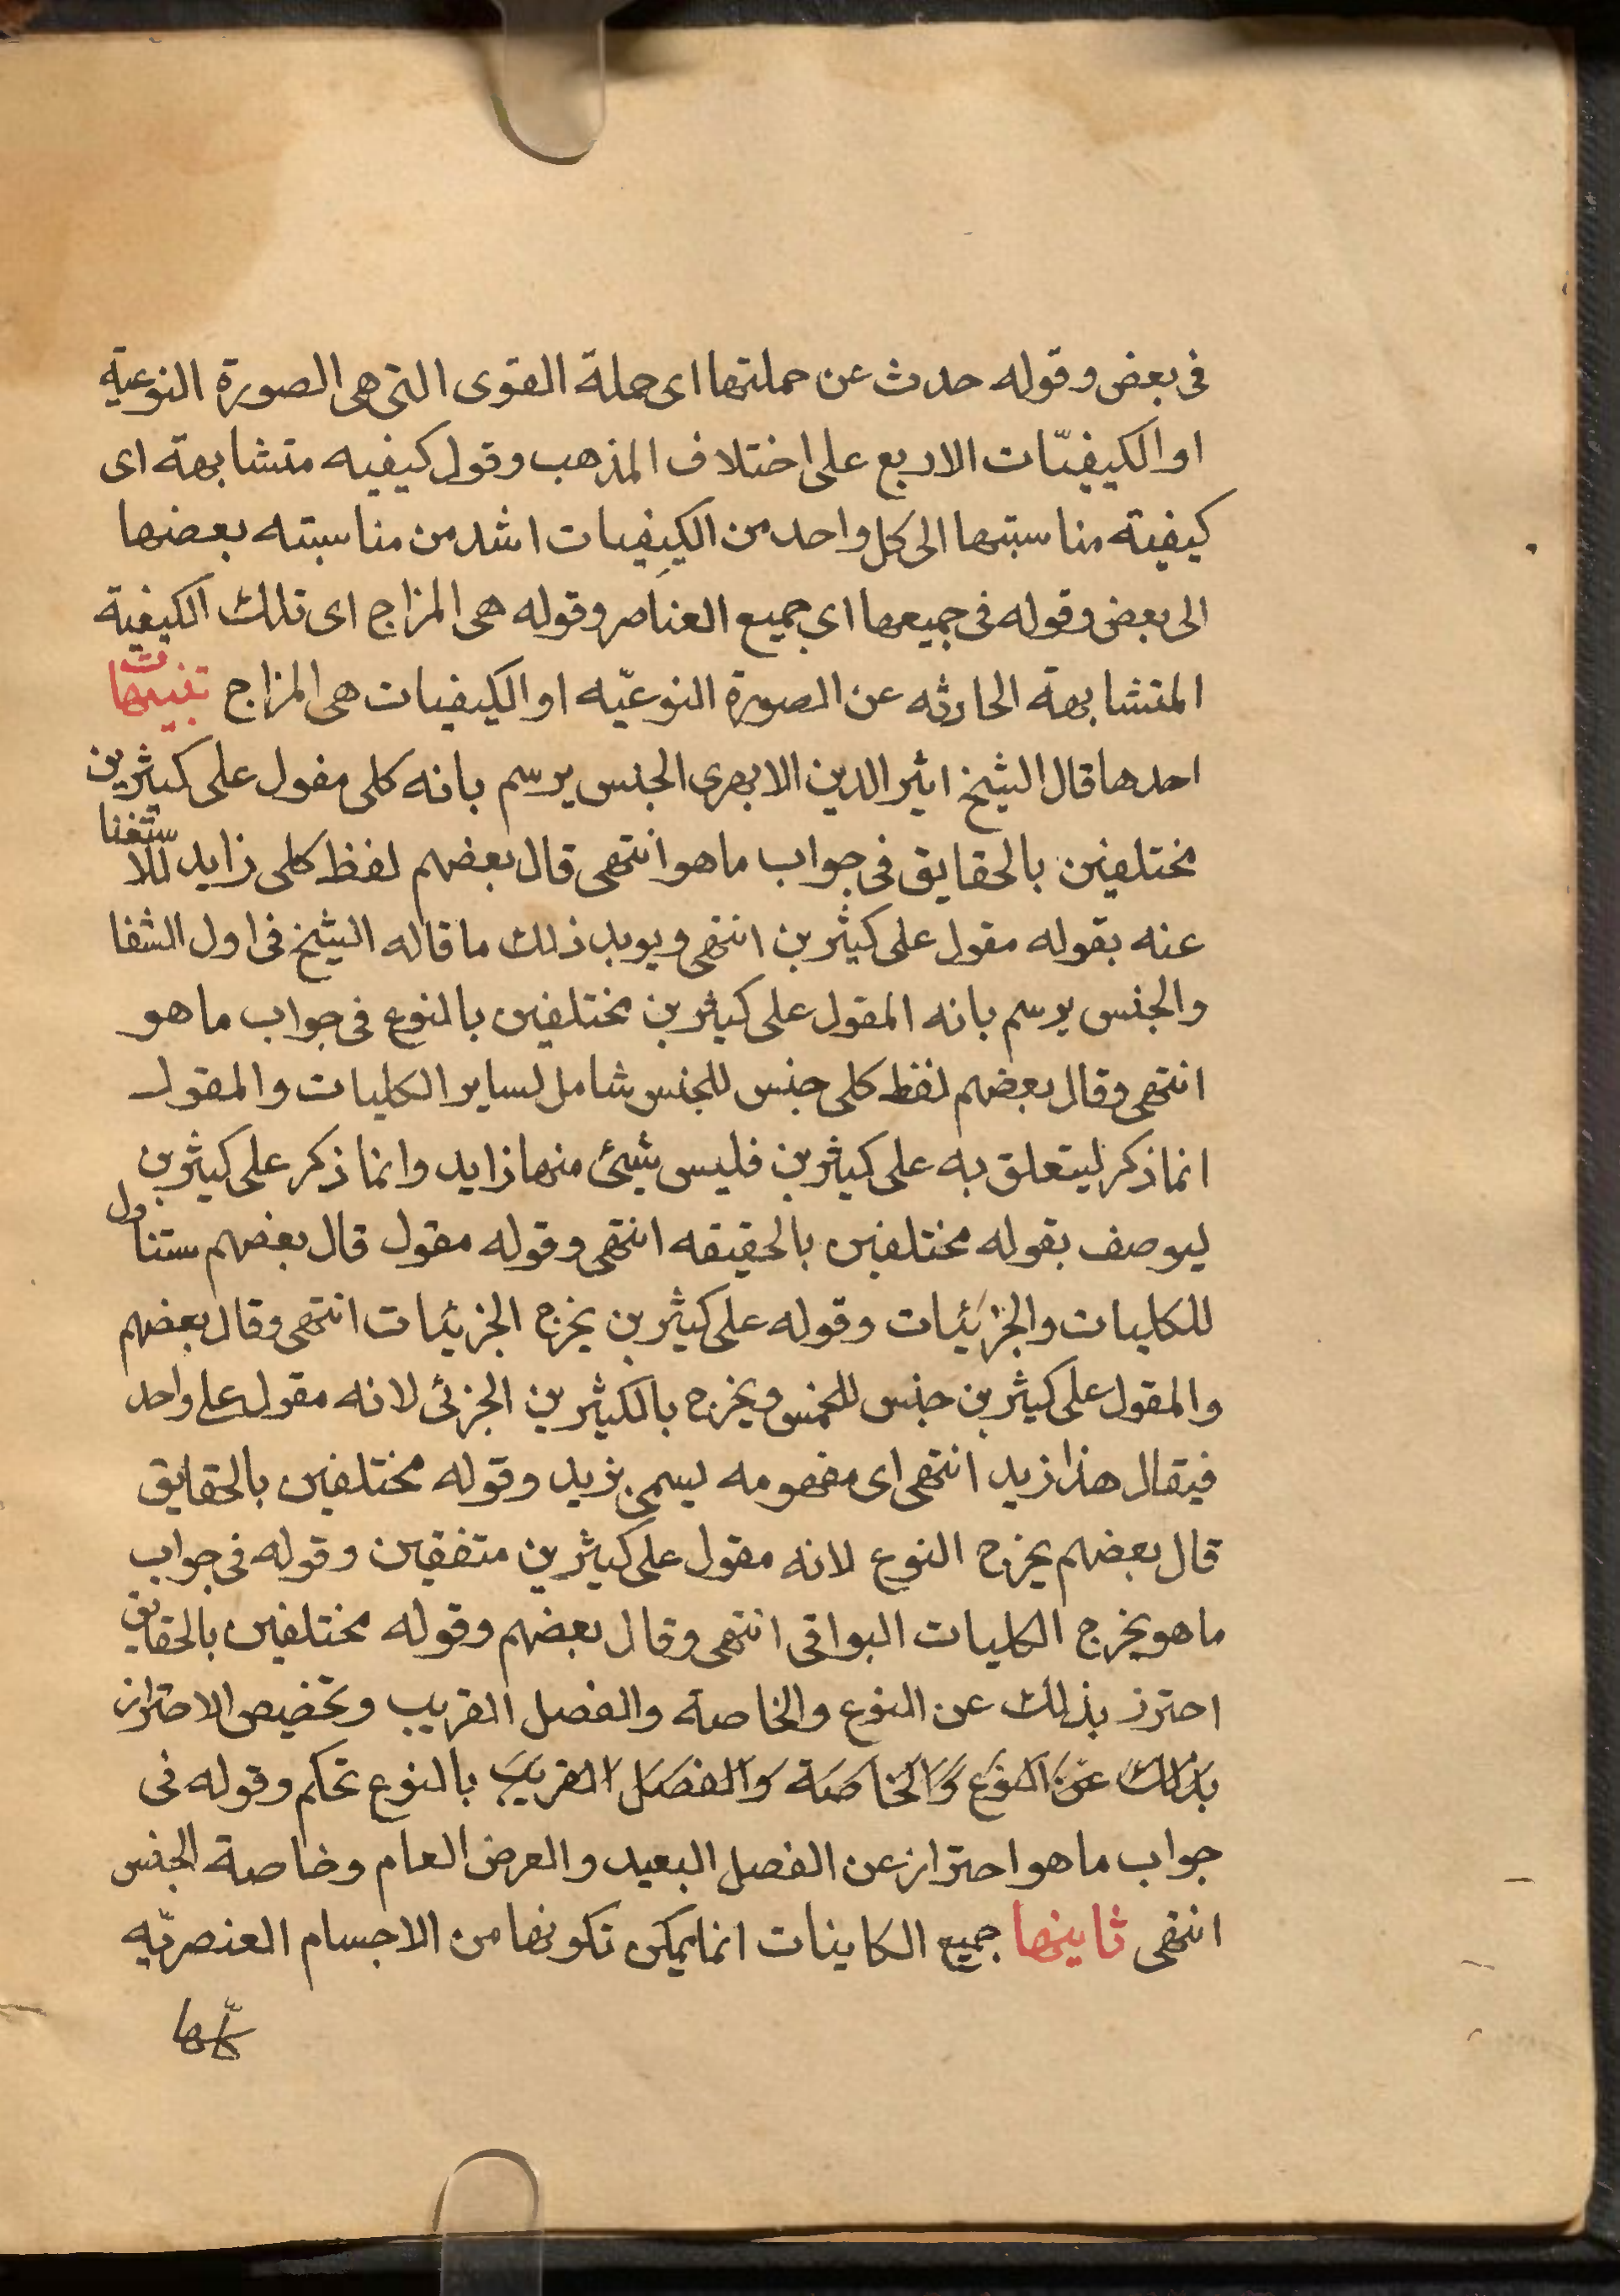 فى بعض وقوله حدث عن جملتها اى جملة القوى التى هى الصورة النوعية
او الكيفيّات الاربع على اختلاف المذهب وقول كيفيه متشابهة اى
كيفية مناسبتها الى كل واحد من الكيفيات اشد من مناسبته بعضها
الى بعض وقوله فى جميعها اي جميع العناصر وقوله هى المزاج اى تلك الكيفية
المتشابهة الحادثه عن الصورة النوعيّه او الكيفيات هى المزاج تنبيهات
احدها قال الشيخ اثير الدين الابهرى الجنس يرسم بانه كلى مقول على كثيرين
مختلفين بالحقايق فى جواب ما هو انتهى قال بعضهم لفظ كلى زايد للاستغنا
عنه بقوله مقول على كثيرين انتهى ويويد ذلك ما قاله الشيخ فى اول الشفا
والجنس يرسم بانه المقول على كثيرين مختلفين بالنوع فى جواب ما هو
انتهى وقال بعضهم لفظ كلى جنس للجنس شامل لساير الكليات والمقول
انما ذكر ليتعلق به على كثيرين فليس شيئ منها زايد وانما ذكر على كثيرين
ليوصف بقوله مختلفين بالحقيقه انتهى وقوله مقول قال بعضهم ستناول
للكليات والجزئيات وقوله على كثيرين يخرج الجزئيات انتهى وقال بعضهم
والمقول على كثيرين جنس للخمس ويخرج بالكثيرين الجزئى لانه مقول على واحد
فيقال هذا زيد انتهى اى مفهومه ليسمى بزيد وقوله مختلفين بالحقايق
قال بعضهم يخرج النوع لانه مقول على كثيرين متفقين وقوله فى جواب
ما هو يخرج الكليات البواقى انتهى وقال بعضهم وقوله مختلفين بالحقايق
احترز بذلك عن النوع والخاصة والفصل القريب وتخصيص الاحتراز
بذلك عن النوع والخاصة والفصل القريب بالنوع تحكم وقوله فى
جواب ما هو احتراز عن الفصل البعيد والعرض العام وخاصة الجنس
انتهى ثانيها جميع الكاينات انما يمكن تكونها من الاجسام العنصريّه
كلّها